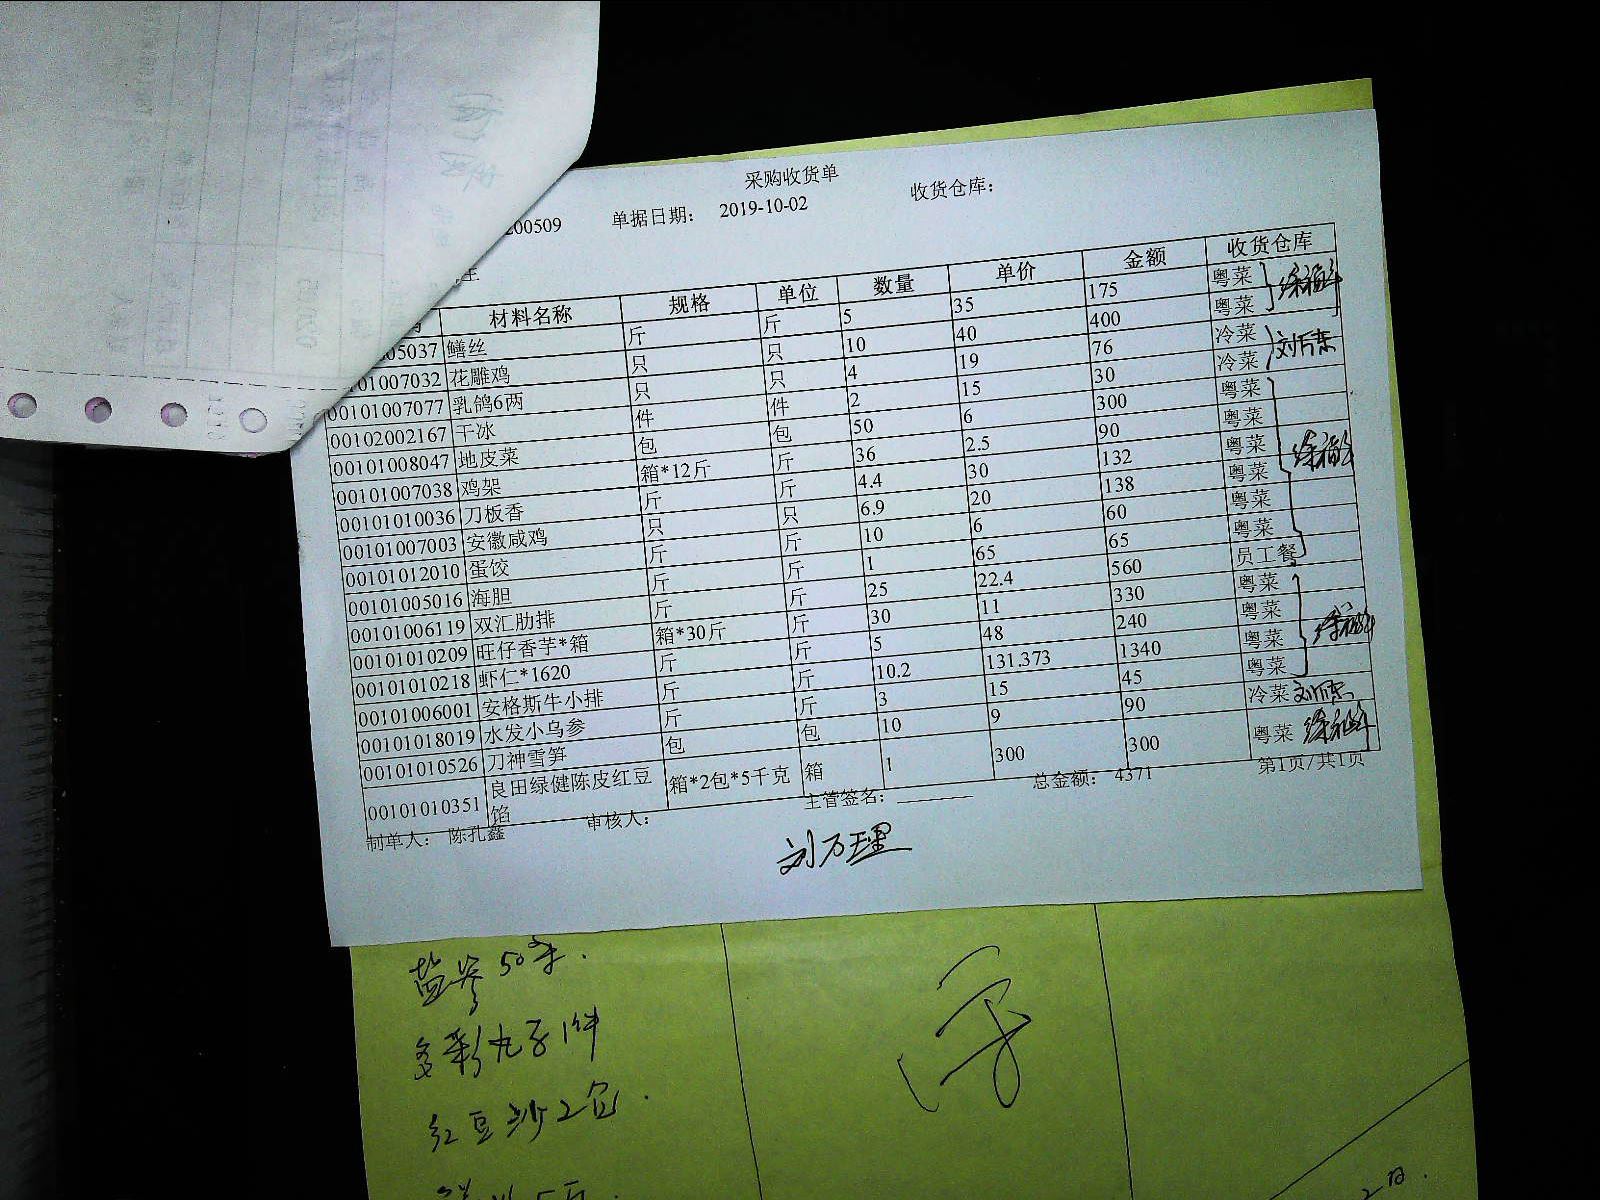 采购收货单
200509 单据日期： 2019-10-02 收货仓库：
材料名称 规格 单位 数量 单价 金额 收货仓库
05037 鳝丝 斤 斤 5 35 175 粤菜
01007032 花雕鸡 只 只 10 40 400 粤菜
00101007077 乳鸽6两 只 只 4 19 76 冷菜
00102002167 干冰 件 件 2 15 30 冷菜 刘万东
00101008047 地皮菜 包 包 50 6 300 粤菜
00101007038 鸡架 箱*12斤 斤 36 2.5 90 粤菜
00101010036 刀板香 斤 斤 4.4 30 132 粤菜
00101007003 安徽咸鸡 只 只 6.9 20 138 粤菜
00101012010 蛋饺 斤 斤 10 6 60 粤菜
00101005016 海胆 斤 斤 1 65 65 粤菜
00101006119 双汇肋排 斤 斤 25 22.4 560 员工餐
00101010209 旺仔香芋*箱 箱*30斤 斤 30 11 330 粤菜
00101010218 虾仁*1620 斤 斤 5 48 240 粤菜
00101006001 安格斯牛小排 斤 斤 10.2 131.373 1340 粤菜
00101018019 水发小乌参 斤 斤 3 15 45 粤菜
00101010526 刀神雪笋 包 包 10 9 90 冷菜
00101010351 良田绿健陈皮红豆馅 箱*2包*5千克 箱 1 300 300 粤菜
制单人： 陈孔鑫 审核人： 主管签名： 总金额： 4371 第1页/共1页
刘万理
多彩丸子1件
红豆沙2包.
2日.